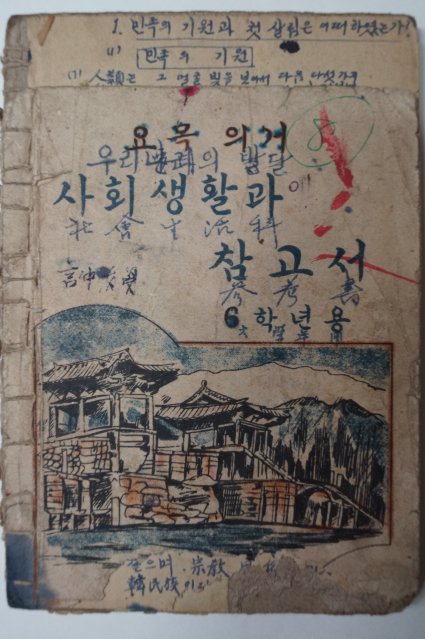 1. 민족의 기원과 첫 살림은 어떠하였는가?
(1) 민족의 기원
(1) 人類는 그 얼골 빛을 보아서 다음 다섯가
요목 의거 8
우리나라의 발달
사회생활과
社會生活科
참고서
參考書
6학년용
六學年用
으며. 宗敎
韓民族